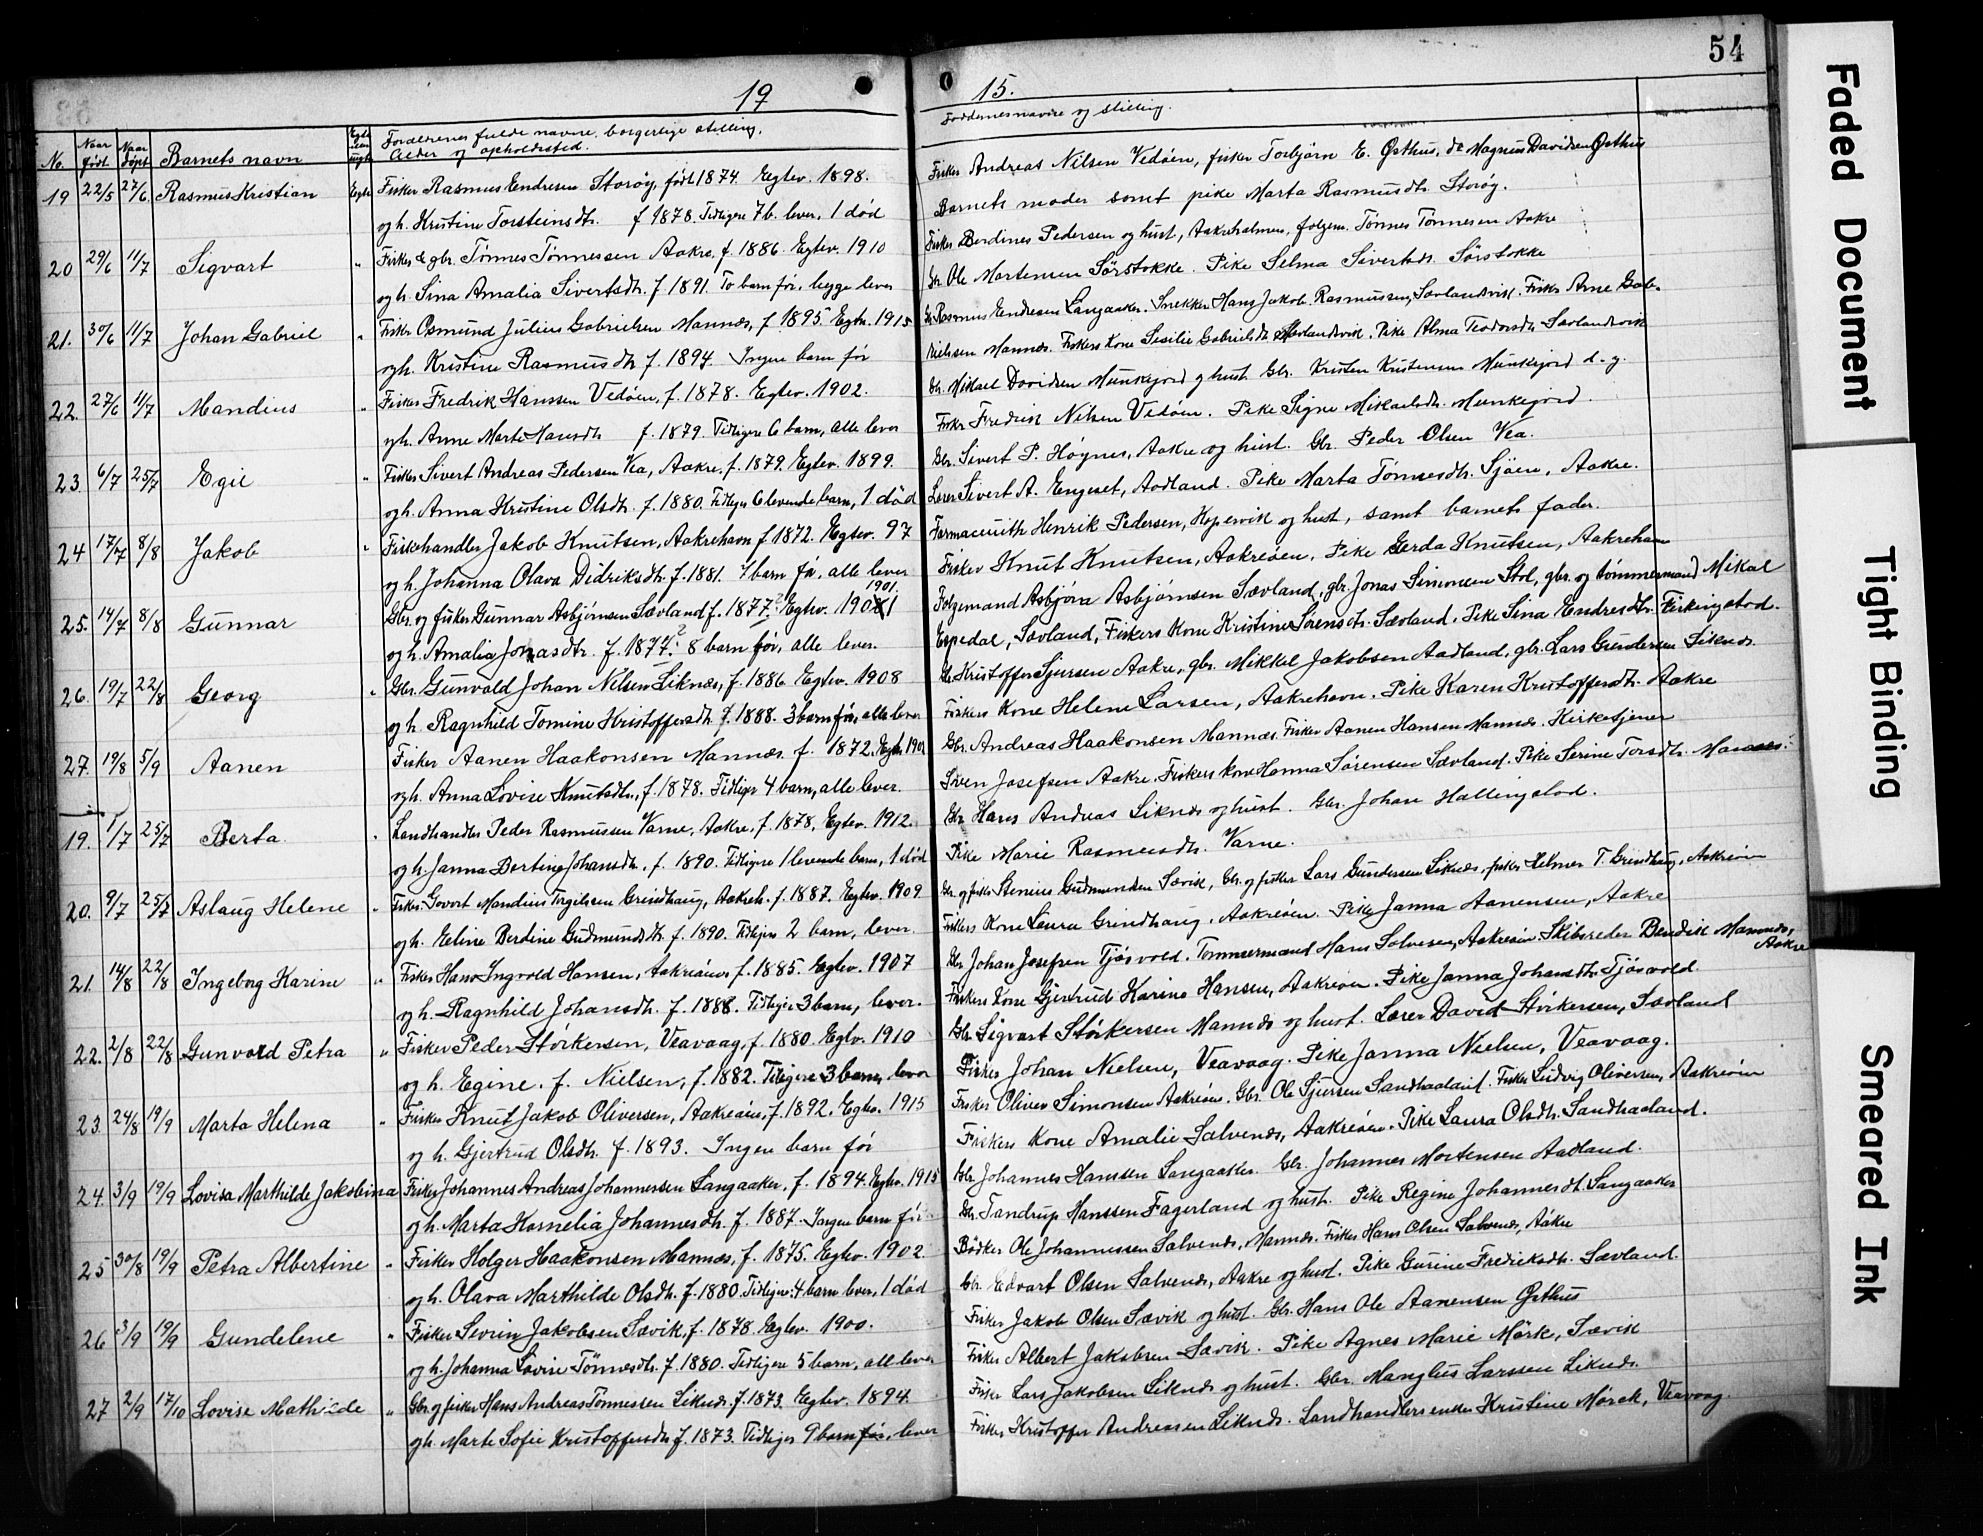 54
19 15.
No. Naar født Naar døpt Barnets navn Egte eller uegte Forældrenes fulde navne, borgerlige stilling, Alder og opholdssted.
Faddernes navne og stilling.
19 22/5 27/6 Rasmus Kristian Egte Fisker Rasmus Endresen Storøy, født 1874. Egtev. 1898.
og h. Kristine Torsteinsdtr. f. 1878. Tidligere 7 b. lever, 1 død
Fisker Andreas Nilsen Vedøen, fisker Torbjørn E. Østhus, do Magnus Davidsen Østhus
Barnets moder samt pike Marta Rasmusdtr. Storøy.
20 29/6 11/7 Sigvart " Fisker & gbr. Tønnes Tønnessen Aakre, f. 1886. Egtev. 1910
og h. Sina Amalia Sivertsdtr. f. 1891. To barn før, begge lever
Fisker Berdines Pedersen og hust, Aakreholmen, folgem. Tønnes Tønnesen Aakre
Gbr. Ole Mortensen Sørstokke. Pike Selma Sivertsdtr. Sørstokke
21. 30/6 11/7 Johan Gabriel " Fisker Osmund Julius Gabrielsen Mannæs, f. 1895. Egtev. 1915
og h. Kristine Rasmusdtr. f. 1894. Ingen barn før
Gbr. Rasmus Endresen Langaaker. Snekker Hans Jakob Rasmussen, Sævlandsvik. Fisker Arne Gab-
rielsen Mannæs. Fiskers kone Sesilie Gabrielsdtr. Sævlandsvik. Pike Alma Teodorsdtr. Sævlandsvik
22. 27/6 11/7 Mandius " Fisker Fredrik Hanssen Vedøen, f. 1878. Egtev. 1902.
og h. Anne Marte Hansdtr. f. 1879. Tidligere 6 barn, alle lever
Gbr. Mikael Davidsen Munkejord og hust. Gbr. Kristen Kristensen Munkejord d. y.
Fisker Fredrik Nilsen Vedøen. Pike Signe Mikaelsdtr. Munkejord.
23. 6/7 25/7 Egil " Fisker Sivert Andreas Pedersen Vea, Aakre, f. 1879. Egtev. 1899.
og h. Anna Kristine Olsdtr. f. 1880. Tidliger 6 levende barn, 1 død
Gbr. Sivert P. Høynes, Aakre og hust. Gbr. Peder Olsen Vea.
Lærer Sivert A. Engeset, Aadland. Pike Marta Tønnesdtr. Sjøen, Aakre.
24 17/7 8/8 Jakob " Fiskehandler Jakob Knutsen, Aakrehavn f. 1872. Egtev. 97
og h. Johanna Olava Didriksdtr. f. 1881. 7 barn før, alle lever
Farmaceuith Henrik Pedersen, Kopervik og hust, samt barnets fader.
Fisker Knut Knutsen, Aakreøen. Pike Gerda Knutsen, Aakrehavn
25. 14/7 8/8 Gunnar Gbr. og fisker Gunnar Asbjørnsen Sævland f. 1877? Egtev. 1901 1901
og h. Amalia Jonasdtr. f. 1877? 8 barn før, alle lever.
Folgemand Asbjørn Asbjørnsen Sævland, gbr. Jonas Simonsen Stol, gbr. og tømmermand Mikal
Espedal, Sævland, Fiskers kone Kristine Sørensdtr. Sævland. Pike Sina Endresdtr. Fiskingstad.
26. 19/7 22/8 Georg " Gbr. Gunvald Johan Nilsen Liknæs, f. 1886 Egtev. 1908
og h. Ragnhild Tomine Kristoffersdtr. f. 1888. 3 barn før, alle lever
Gbr. Kristoffer Sjursen Aakre, gbr. Mikkel Jakobsen Aadland, gbr. Lars Gundersen Liknæs.
Fiskers kone Helene Larsen, Aakrehavn. Pike Karen Kristoffersdtr. Aakre
27. 19/8 5/9 Aanen Fisker Aanen Haakonsen Mannæs f. 1872. Egtev. 1902
og h. Anna Lovise Knutsdtr., f. 1878. Tidliger 4 barn, alle lever.
Gbr. Andreas Haakonsen Mannæs. Fisker Aanen Hansen Mannæs. Kirketjener
Sven Josefsen Aakre. Fiskers kone Hanna Sørensen Sævland. Pike Serine Torsdtr. Mannæs.
19. 1/7 25/7 Berta " Landhandler Peder Rasmussen Varne, Aakre, f. 1878, Egtev. 1912.
og h. Janna Bertine Johansdtr., f. 1890. Tidligere 1 levende barn, 1 død
Gbr. Hans Andreas Liknæs og hust. Gbr. Johan Hallingstad.
Pike Marie Rasmusdtr. Varne.
20. 9/7 25/7 Aslaug Helene " Fisker Govert Mandius Torgilsen Grindhaug, Aakreh. f. 1887. Egtev. 1909
og h. Eeline Berdine Gudmundsdtr. f. 1890. Tidligere 2 barn, lever.
Gbr. og fisker Stenius Gudmundsen Sævik, Gbr. og fisker Lars Gundersen Liknæs, fisker Helmer T. Grindhaug, Aakreøen
Fiskers kone Laura Grindhaug, Aakreøen. Pike Janna Aanensen, Aakre
21. 14/8 22/8 Ingeborg Karine " Fisker Hans Ingvald Hansen, Aakreøen f. 1885. Egtev. 1907
og h. Ragnhild Johansdtr. f. 1888. Tidliger 3 barn, lever.
Gbr. Johan Josefsen Tjøsvold. Tømmermand Mons Salvesen, Aakreøen Skibsreder Bendik Mannæs, Aakre
Fiskers kone Gjertrud Karine Hansen, Aakreøen. Pike Janna Johansdtr. Tjøsvold.
22. 2/8 22/8 Gunvald Petra " Fisker Peder Størkersen, Veavaag, f. 1880. Egtev. 1910
og h. Egine. f. Nielsen, f. 1882. Tidligere 3 barn, lever
Gbr. Sigvart Størkersen Mannæs og hust. Lærer David Størkersen, Sævland
Fisker Johan Nielsen, Veavaag. Pike Janna Nielsen, Veavaag.
23. 24/8 19/9 Marta Helena " Fisker Knut Jakob Oliversen, Aakreøen, f. 1892. Egtev. 1915
og h. Gjertrud Olsdtr. f. 1893. Ingen barn før
Fisker Oliver Simonsen Aakreøen. Gbr. Ole Sjursen Sandhaaland. Fisker Ludvig Oliversen, Aakreøen
Fiskers kone Amalie Salvenæs, Aakreøen. Pike Laura Olsdtr. Sandhaaland.
24. 3/9 19/9 Lovisa Marthilde Jakobina Fisker Johannes Andreas Johannessen Langaaker, f. 1894. Egtev. 1915
og h. Marta Kornelia Johannesdtr. f. 1887. Ingen barn før
Gbr. Johannes Hanssen Langaaker. Gbr. Johannes Mortensen Aadland.
Gbr. Tandrup Hanssen Fagerland og hust. Pike Regine Johannesdtr. Langaaker
25 30/8 19/9 Petra Albertine " Fisker Holger Haakonsen Mannæs, f. 1875. Egtev. 1902
og h. Olava Marthilde Olsdtr. f. 1880. Tidligere 4 barn lever, 1 død
Bødker Ole Johannessen Salvenæs, Mannæs. Fisker Hans Olsen Salvenæs, Aakre
Gbr. Edvart Olsen Salvenæs, Aakre og hust. Pike Gurine Fredriksdtr. Sævland.
26 3/9 19/9 Gundelene " Fisker Sevrin Jakobsen Sævik, f. 1878. Egtev. 1900.
og h. Johanna Lovise Tønnesdtr. f. 1880. Tidligere 5 barn, alle lever
Fisker Jakob Olsen Sævik og hust. Gbr. Hans Ole Aanensen Østhus
Fisker Albert Jakobsen Sævik. Pike Agnes Marie Mørk, Sævik
27 2/9 17/10 Lovise Mathilde " Gbr. og fisker Hans Andreas Tønnessen Liknæs. f. 1873. Egtev. 1894.
og h. Marte Sofie Kristoffersdtr. f. 1873. Tidliger 9 barn før, lever
Fisker Lars Jakobsen Liknæs og hust. Gbr. Manglus Larssen Liknæs.
Fisker Kristoffer Andreassen Liknæs. Landhandlers enke Kristine Mørck, Veavaag.
Faded Document
Tight Binding
Smeared Ink